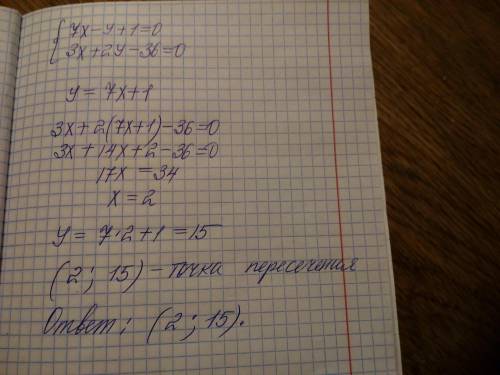 {7x-y+1=0
3x+2y-36=0
y=7x+1
3x+2(7x+1)-36=0
3x+14x+2-36=0
17x=34
x=2
y=7·2+1=15
(2; 15) - точка пересечения
Ответ: (2; 15).